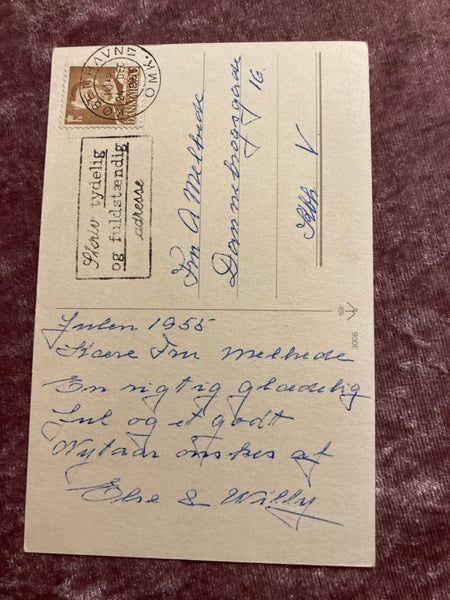 KØBENHAVN
OMK.
DEC
17
DANMARK
Skriv tydelig
og fuldstændig
adresse
Fru A Melhede
Dannebrogsgade
16.
Kbh V
3006
Julen 1955
Kære Fru Melhede
En rigtig glædelig
Jul og et godt
Nytaar ønskes af
Else & Willy